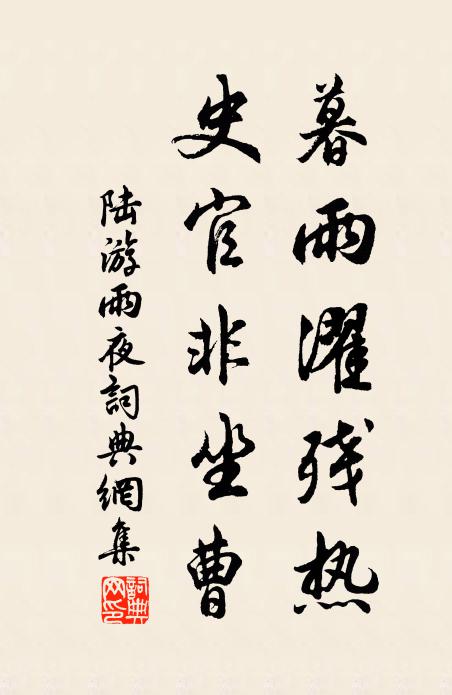 暮雨濯残热
史官非坐曹
陆游雨夜詞典網集
詞典網印